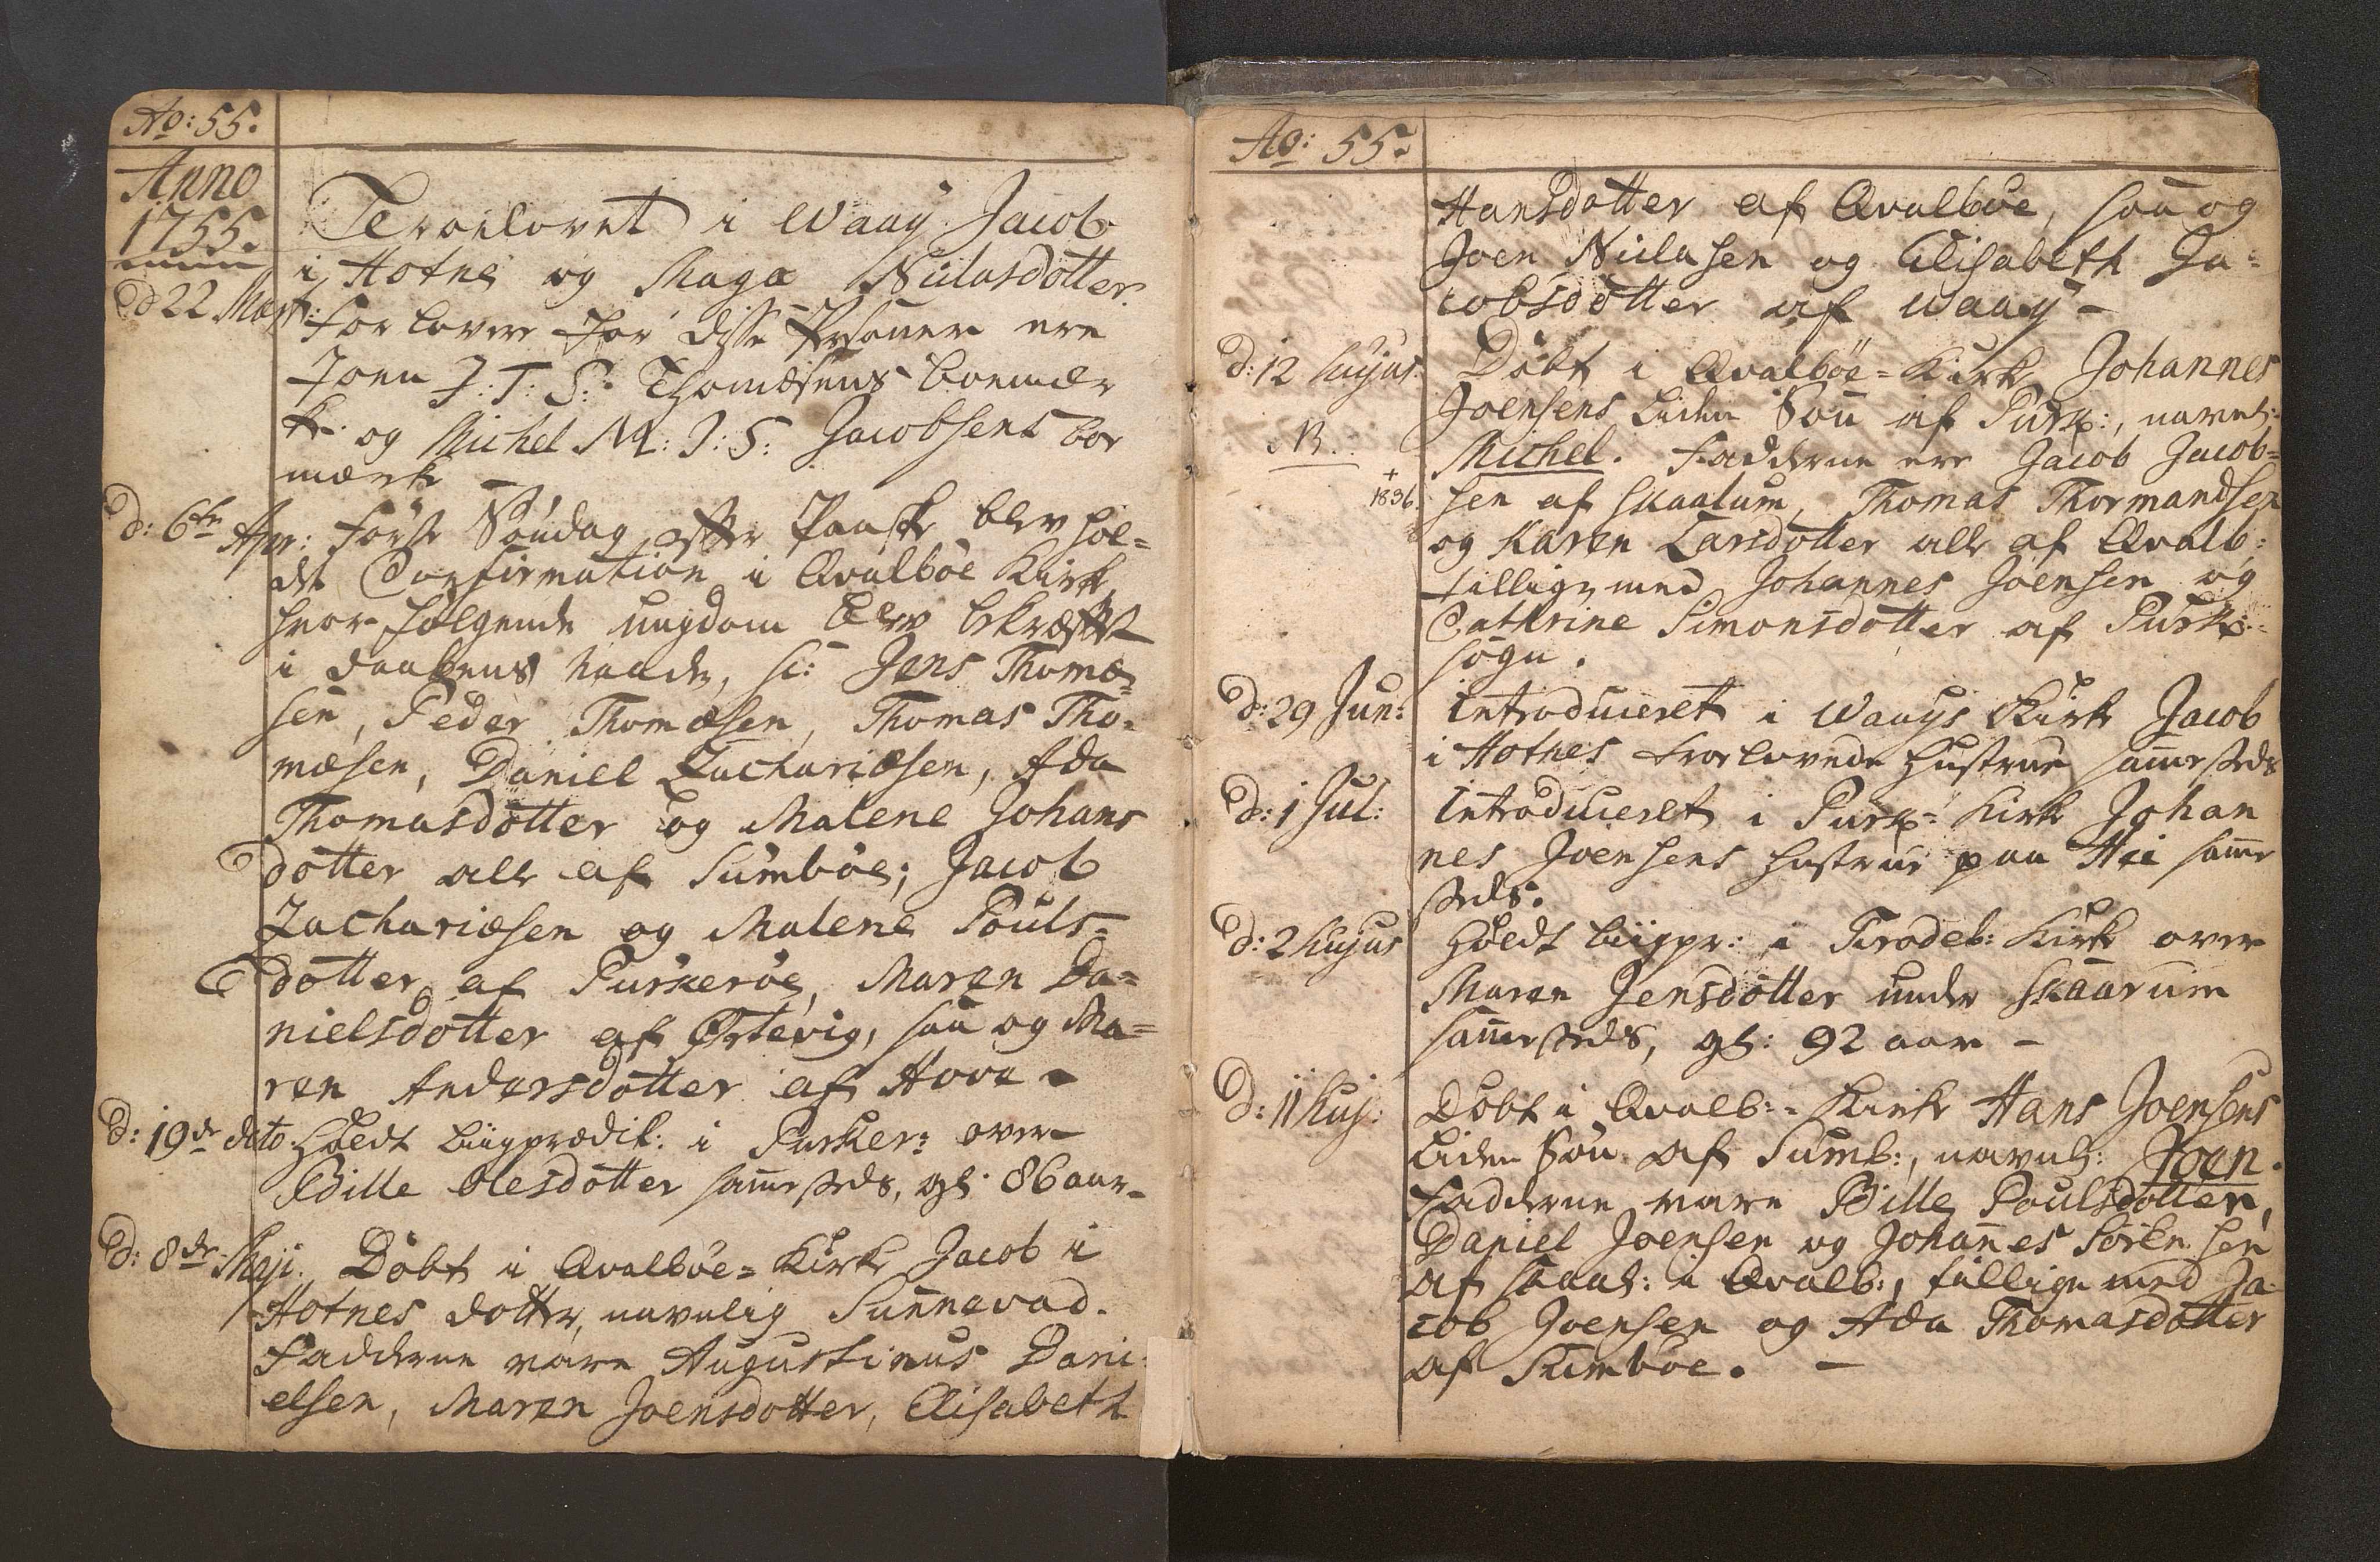 Ao: 55.
Anno
1755.
d 22 Mart:
Troelovet i Waay Jacob
i Hotne og Maga Niclasdotter.
Forlovere for disse Personer ere
Joen J: T: S: Thomæsens boemær
k. og Michel M: J: S: Jacobsens boe
mærk
d: 6te Apr: første Søndag efter Paaske blev hol=
dt Confirmation i Qvalbøe Kirke
hvor følgende ungdom blev bekræftet
i daabens naade, sc: Jens Thomæ=
sen, Peder Thomæsen, Thomas Tho=
mæsen, Daniel Zachariæsen, Ada
Thomasdotter og Malene Johans
dotter alle af Sumbøe; Jacob
Zachariæsen og Malene Pouls=
dotter af Purkerøe, Maren Da=
nielsdotter af Ørtevig, saa og Ma=
ren Andersdotter af Hove -
d: 19de dito Holdt liigprædik: i Purker: over
Bille Olesdotter sammesteds, gl: 86 aar-
d: 8de Maji. Døbt i Qvalbøe= Kirke Jacob i
Hotnes dotter, navnlig Sunnevad.
Fadderne vare Augustinus Dani=
elsen, Maren Joensdotter, Elisabeth
Ao: 55.
Hansdotter af Qvalbøe, saa og
Joen Niclasen og Elisabeth Ja=
cobsdotter af Waay -
d: 12 hujus. Døbt i Qvalbøe= Kirke Johannes
Joensens liden Søn af Purk:, navnl:
NB. Michel. Fadderne ere Jacob Jacob=
+
1836. sen af Skaalum, Thomas Thormandsen
og Karen Larsdotter alle af Qvalb:
tilligemed Johannes Joensen og
Cathrine Simonsdotter af Purk:=
sogn.
d: 29 Jun: introduceret i Waays Kirke Jacob
i Hotnes troelovede hustrue sammesteds
d: 1 Jul: introduceret i Purk= Kirke Johan
nes Joensens hustrue paa Hei samme
steds.
d: 2 hujus Holdt liigpr: i Frodeb: Kirke over
Maren Jensdotter under Skaarum
sammesteds, gl: 92 aar -
d: 11 huj: Døbt i Qvalb:= Kirke Hans Joensens
liden Søn af Sumb:, navnl: Joen.
Fadderne vare Bille Poulsdotter,
Daniel Joensen og Johannes Sørensen
af Skaal: i Qvalb:, tilligemed Ja=
cob Joensen og Ada Thomasdotter
af Sumbøe. -